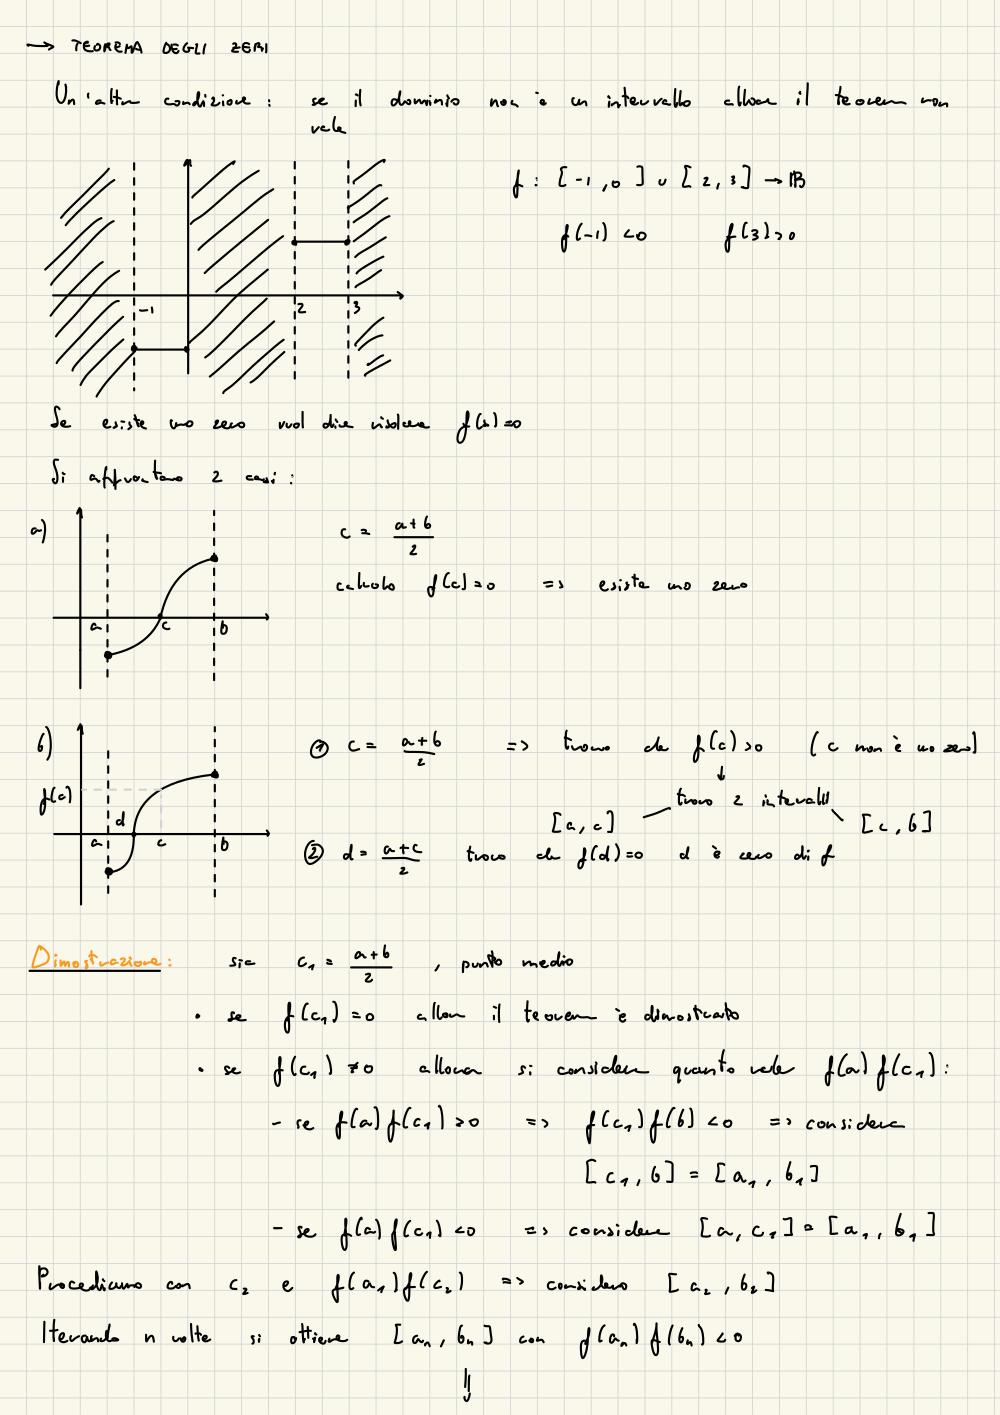 → TEOREMA DEGLI ZERI
Un'altra condizione : se il dominio non è un intervallo allora il teorema non
vale
f : [-1, 0] ∪ [2, 3] → ℝ
f(-1) <0 f(3)>0
-1 2 3
Se esiste uno zero vuol dire risolvere f(x)=0
Si affrontano 2 casi :
a)
c = (a+b)/2
calcolo f(c)=0 => esiste uno zero
a c b
b)
① c = (a+b)/2 => trovo che f(c)>0 (c non è uno zero)
↓
f(c)
trovo 2 intervalli
[a, c] [c, b]
d
a c b
② d = (a+c)/2 trovo che f(d)=0 d è zero di f
Dimostrazione: sia c₁ = (a+b)/2 , punto medio
• se f(c₁) =0 allora il teorema è dimostrato
• se f(c₁) ≠0 allora si considera quanto vale f(a) f(c₁) :
- se f(a) f(c₁) >0 => f(c₁) f(b) <0 => considera
[c₁, b] = [a₁, b₁]
- se f(a) f(c₁) <0 => considera [a, c₁] = [a₁, b₁]
Procediamo con c₂ e f(a₁) f(c₂) => considero [a₂, b₂]
Iterando n volte si ottiene [aₙ, bₙ] con f(aₙ) f(bₙ) <0
⇓